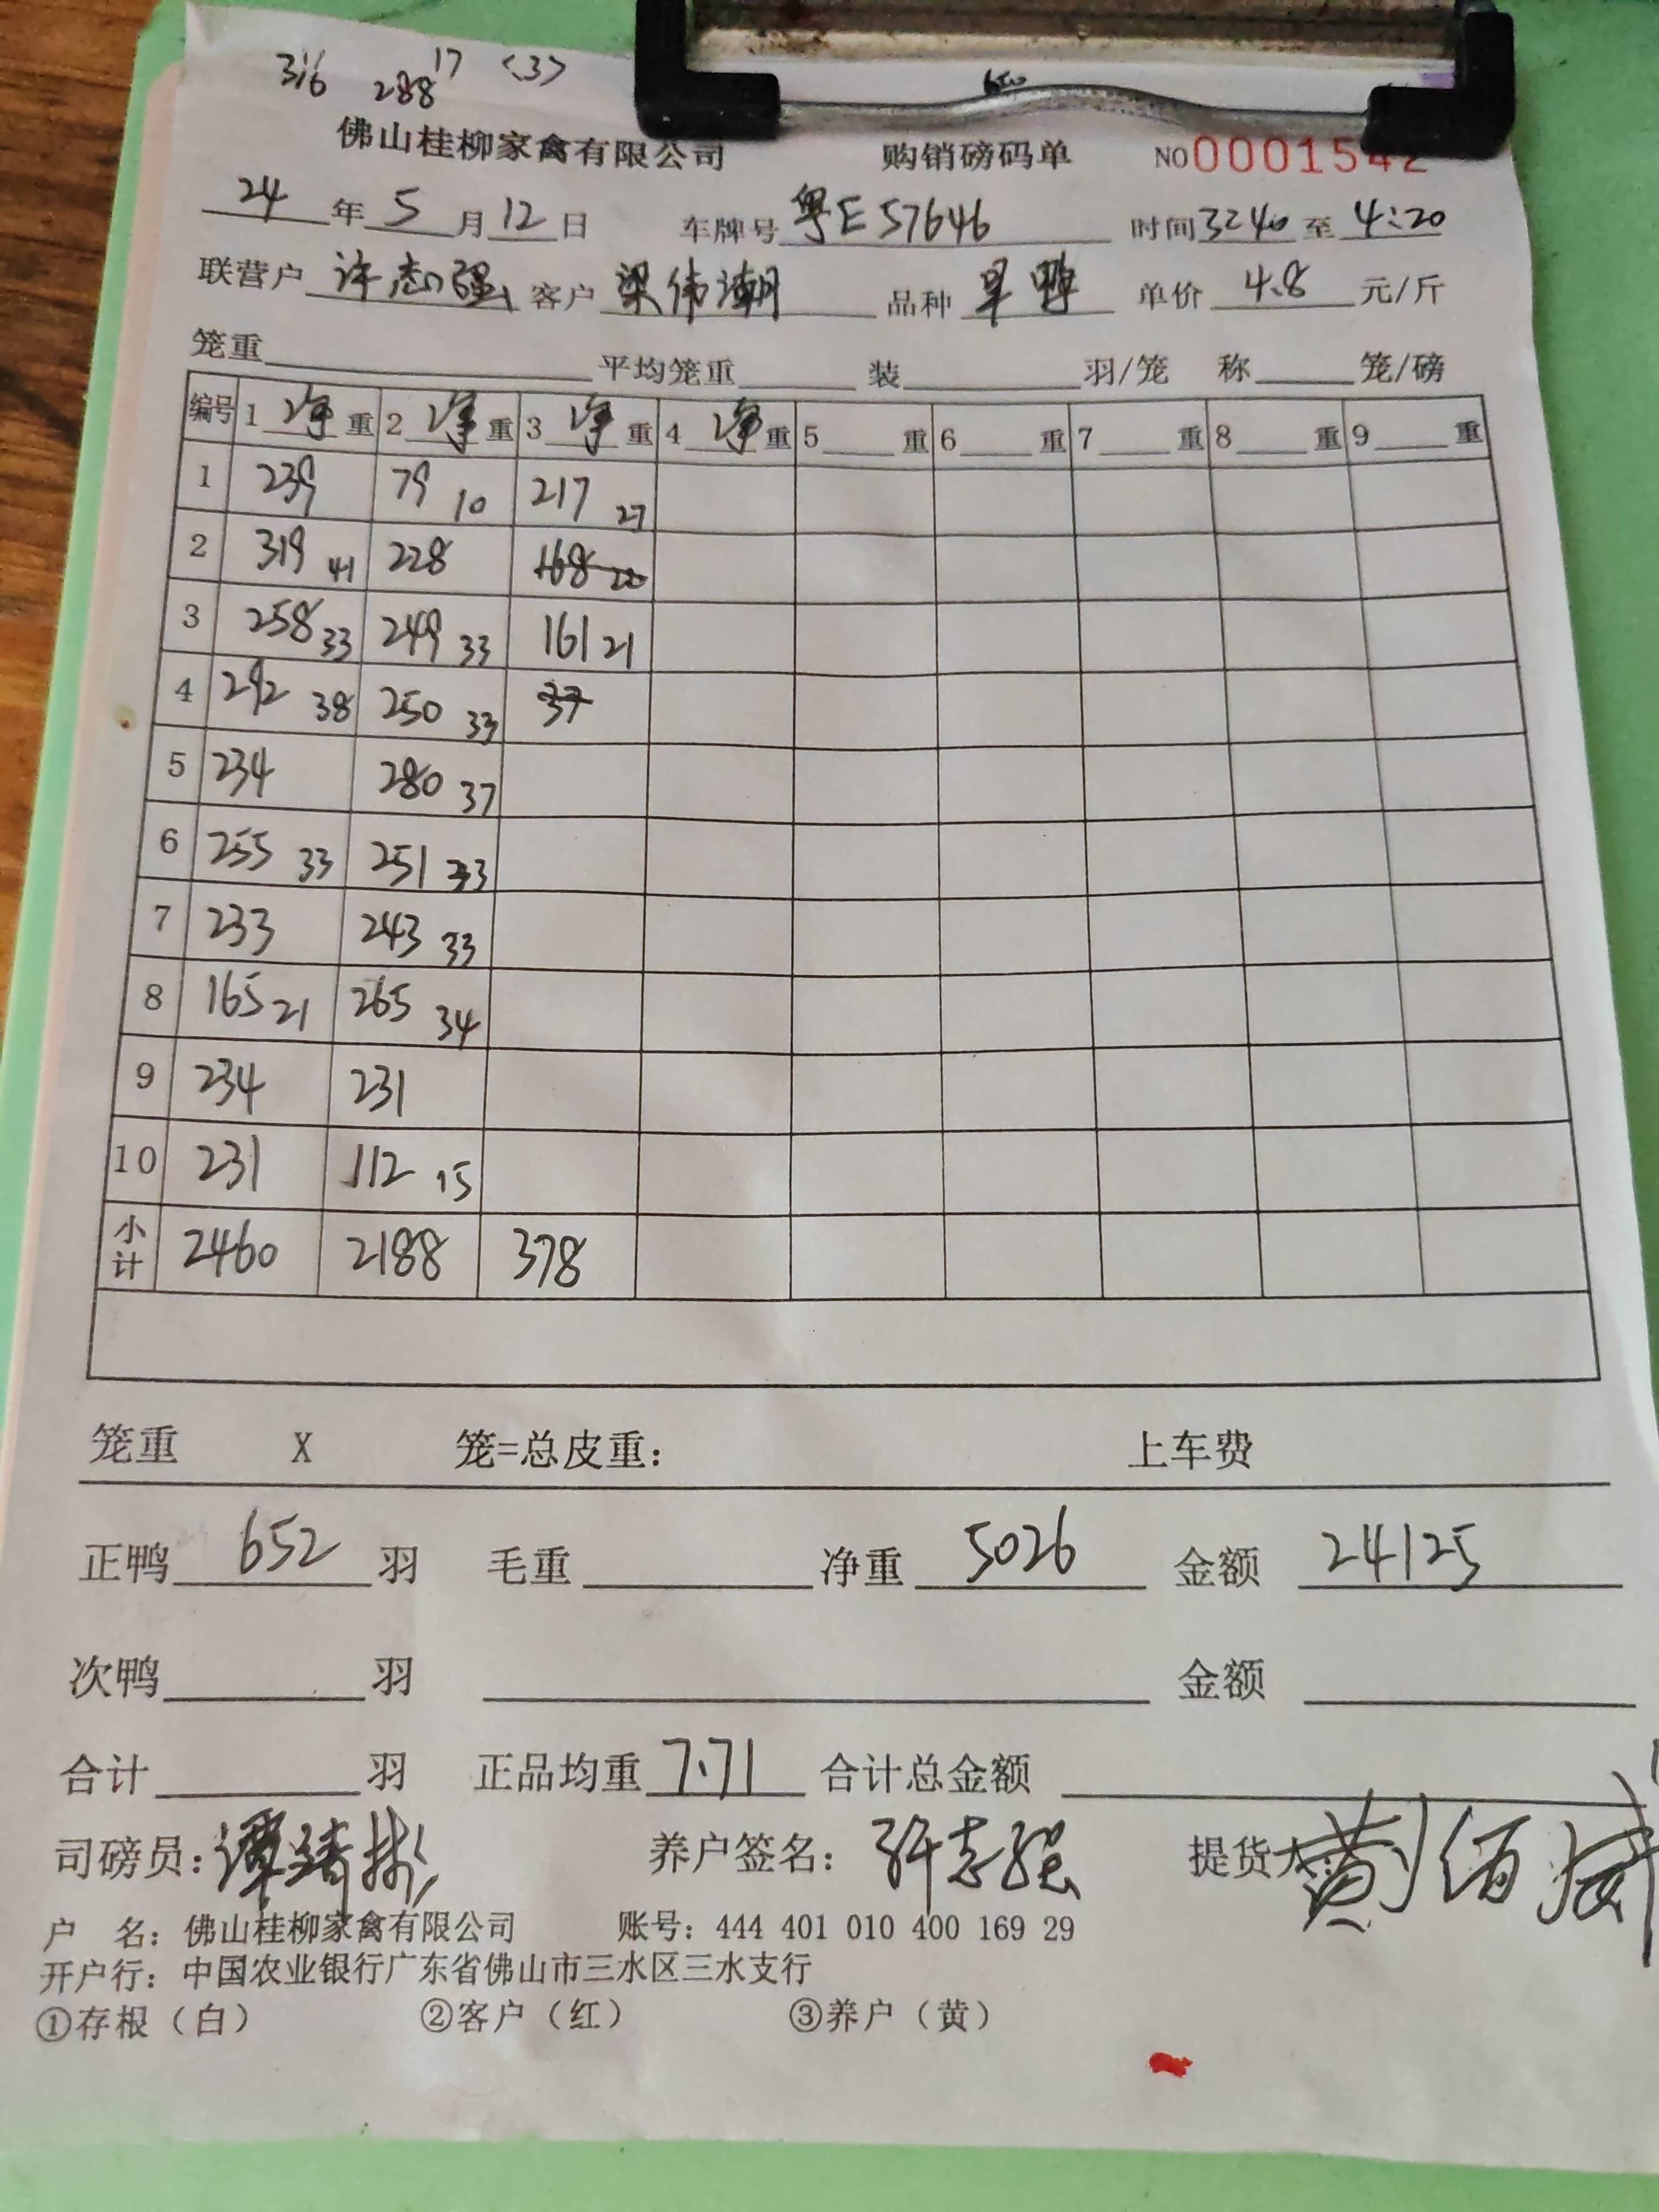 316 288 17 <3>
佛山桂柳家禽有限公司 购销磅码单 NO0001542
24 年 5 月 12 日 车牌号 粤E 57646 时间 3:40 至 4:20
联营户 许志强 客户 梁伟潮 品种 旱鸭 单价 4.8 元/斤
笼重 平均笼重 装 羽/笼 称 笼/磅
编号 1 净 重 2 净 重 3 净 重 4 净 重 5 重 6 重 7 重 8 重 9 重
1 239 79 10 217 27
2 319 41 228 168 20
3 258 33 249 33 161 21
4 292 38 250 33 37
5 234 280 37
6 255 33 251 33
7 233 243 33
8 165 21 265 34
9 234 231
10 231 112 15
小计 2460 2188 378
笼重 X 笼=总皮重: 上车费
正鸭 652 羽 毛重 净重 5026 金额 24125
次鸭 羽 金额
合计 羽 正品均重 7.71 合计总金额
司磅员: 养户签名: 许志强 提货人
户 名: 佛山桂柳家禽有限公司 账号: 444 401 010 400 169 29
开户行: 中国农业银行广东省佛山市三水区三水支行
①存根(白) ②客户(红) ③养户(黄)